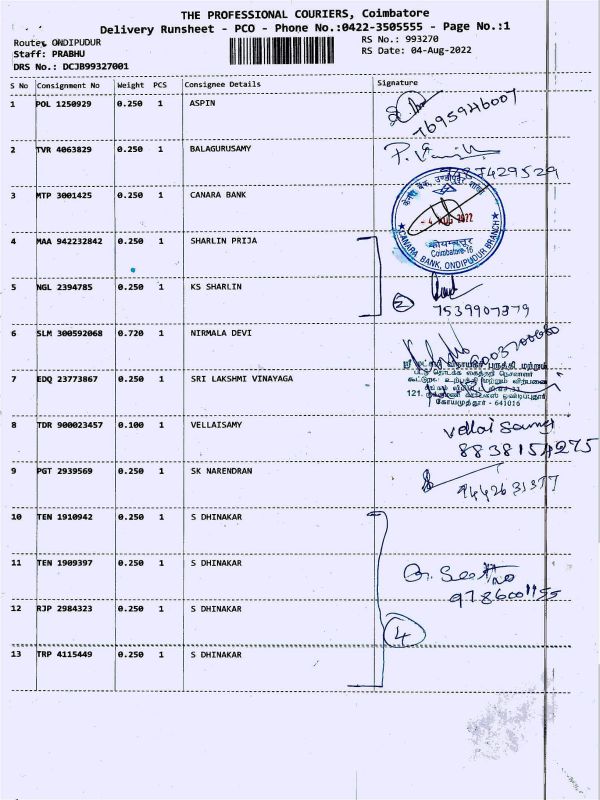 THE PROFESSIONAL COURIERS, Coimbatore
Delivery Runsheet - PCO - Phone No.:0422-3505555 - Page No.:1
Route: ONDIPUDUR
RS No.: 993270
Staff: PRABHU
RS Date: 04-Aug-2022
DRS No.: DCJB99327001
S No Consignment No Weight PCS Consignee Details Signature
1 POL 1250929 0.250 1 ASPIN
7695946007
2 TVR 4063829 0.250 1 BALAGURUSAMY
3 MTP 3001425 0.250 1 CANARA BANK
- 4 AUG 2022
कोयम्बत्तूर
Coimbatore-16
CANARA BANK, ONDIPUDUR BRANCH
4 MAA 942232842 0.250 1 SHARLIN PRIJA
5 NGL 2394785 0.250 1 KS SHARLIN
2
7539907379
6 SLM 300592068 0.720 1 NIRMALA DEVI
7 EDQ 23773867 0.250 1 SRI LAKSHMI VINAYAGA
கோயமுத்தூர் - 641016
8 TDR 900023457 0.100 1 VELLAISAMY
Vellai Samy
8838154275
9 PGT 2939569 0.250 1 SK NARENDRAN
9442631377
10 TEN 1910942 0.250 1 S DHINAKAR
11 TEN 1909397 0.250 1 S DHINAKAR
9786001155
12 RJP 2984323 0.250 1 S DHINAKAR
4
13 TRP 4115449 0.250 1 S DHINAKAR